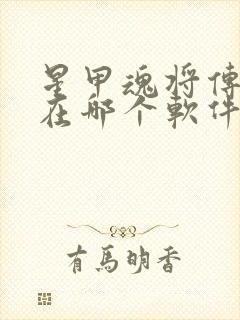 星甲魂将傳
在哪个軟件
有馬明香